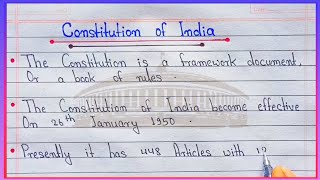 Constitution of India
The Constitution is a framework document,
Or a book of rules.
The Constitution of India become effective
On 26th January 1950.
Presently it has 448 Articles with